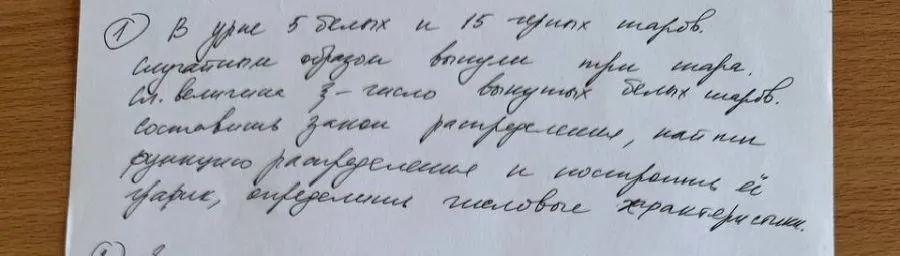 ① В урне 5 белых и 15 черных шаров.
Случайным образом вынули три шара.
Сл. величина ξ – число вынутых белых шаров.
Составить закон распределения, найти
функцию распределения и построить её
график, определить числовые характеристики.